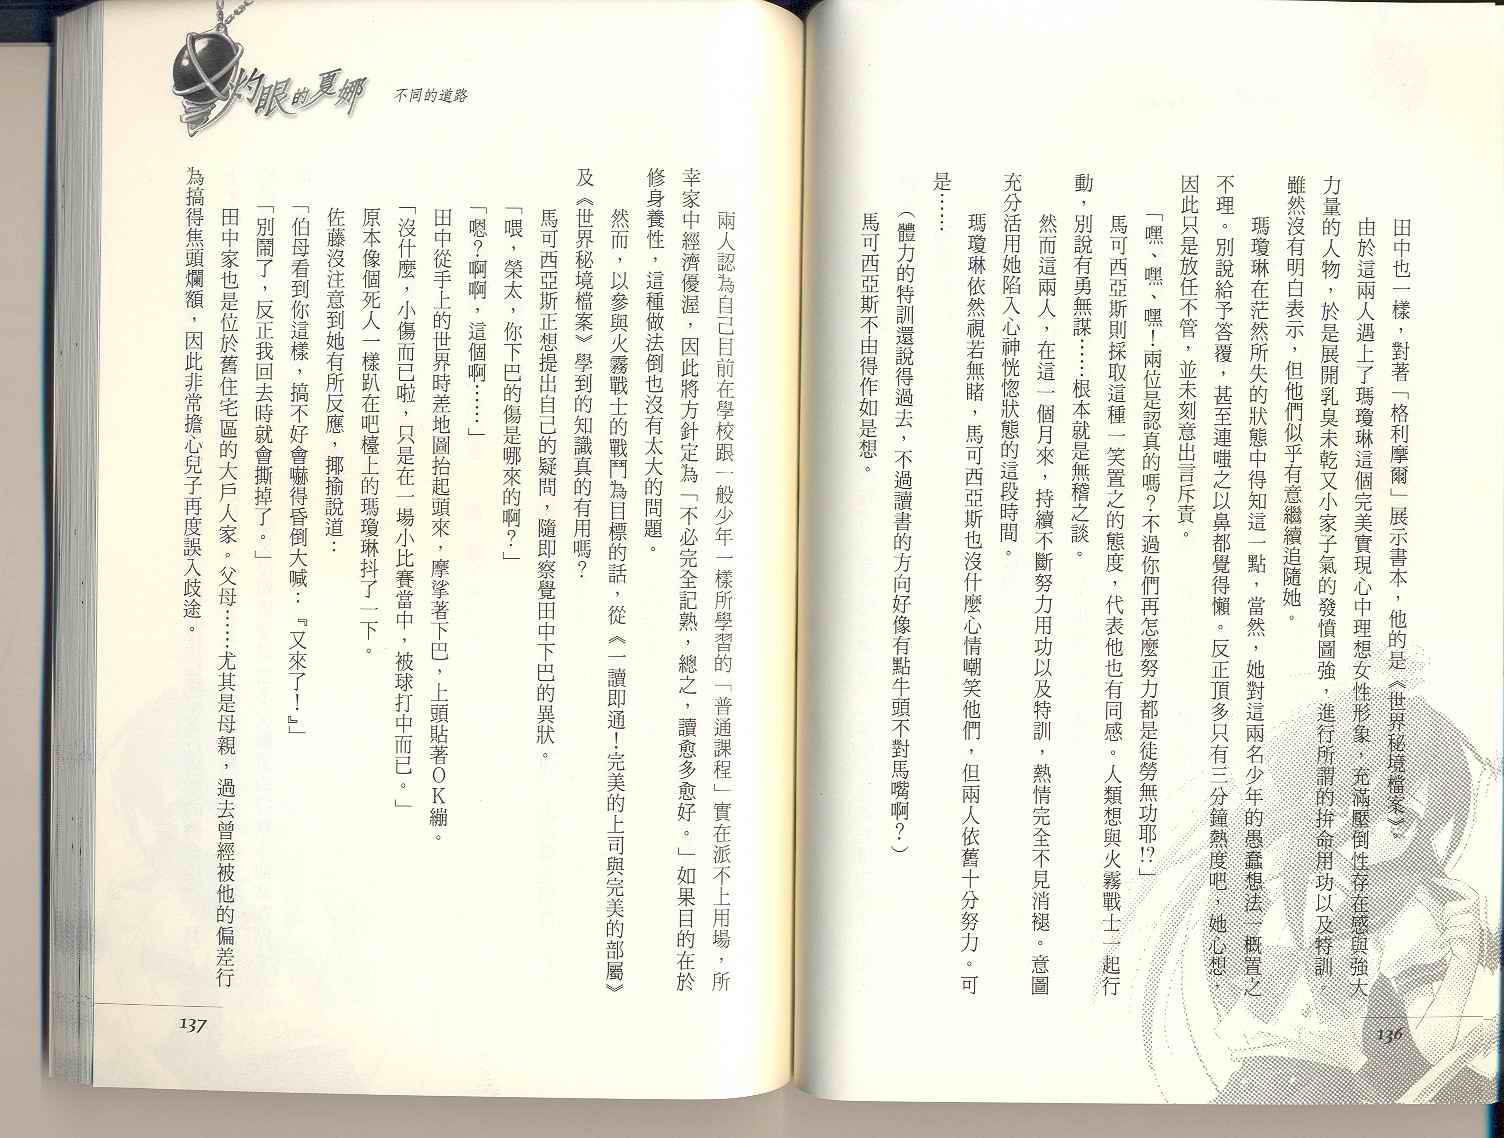 田中也一樣，對著「格利摩爾」展示書本，他的是《世界秘境檔案》。
由於這兩人遇上了瑪瓊琳這個完美實現心中理想女性形象，充滿壓倒性存在感與強大
力量的人物，於是展開乳臭未乾又小家子氣的發憤圖強，進行所謂的拚命用功以及特訓
雖然沒有明白表示，但他們似乎有意繼續追隨她。
瑪瓊琳在茫然所失的狀態中得知這一點，當然，她對這兩名少年的愚蠢想法一概置之
不理。別說給予答覆，甚至連嗤之以鼻都覺得懶。反正頂多只有三分鐘熱度吧，她心想，
因此只是放任不管，並未刻意出言斥責。
「嘿、嘿、嘿！兩位是認真的嗎？不過你們再怎麼努力都是徒勞無功耶!?」
馬可西亞斯則採取這種一笑置之的態度，代表他也有同感。人類想與火霧戰士一起行
動，別說有勇無謀……根本就是無稽之談。
然而這兩人，在這一個月來，持續不斷努力用功以及特訓，熱情完全不見消褪。意圖
充分活用她陷入心神恍惚狀態的這段時間。
瑪瓊琳依然視若無睹，馬可西亞斯也沒什麼心情嘲笑他們，但兩人依舊十分努力。可
是……
（體力的特訓還說得過去，不過讀書的方向好像有點牛頭不對馬嘴啊？）
馬可西亞斯不由得作如是想。
136
灼眼的夏娜
不同的道路
兩人認為自己目前在學校跟一般少年一樣所學習的「普通課程」實在派不上用場，所
幸家中經濟優渥，因此將方針定為「不必完全記熟，總之，讀愈多愈好。」如果目的在於
修身養性，這種做法倒也沒有太大的問題。
然而，以參與火霧戰士的戰鬥為目標的話，從《一讀即通！完美的上司與完美的部屬》
及《世界秘境檔案》學到的知識真的有用嗎？
馬可西亞斯正想提出自己的疑問，隨即察覺田中下巴的異狀。
「喂，榮太，你下巴的傷是哪來的啊？」
「嗯？啊啊，這個啊……」
田中從手上的世界時差地圖抬起頭來，摩挲著下巴，上頭貼著ＯＫ繃。
「沒什麼，小傷而已啦，只是在一場小比賽當中，被球打中而已。」
原本像個死人一樣趴在吧檯上的瑪瓊琳抖了一下。
佐藤沒注意到她有所反應，揶揄說道：
「伯母看到你這樣，搞不好會嚇得昏倒大喊：『又來了！』」
「別鬧了，反正我回去時就會撕掉了。」
田中家也是位於舊住宅區的大戶人家。父母……尤其是母親，過去曾經被他的偏差行
為搞得焦頭爛額，因此非常擔心兒子再度誤入歧途。
137